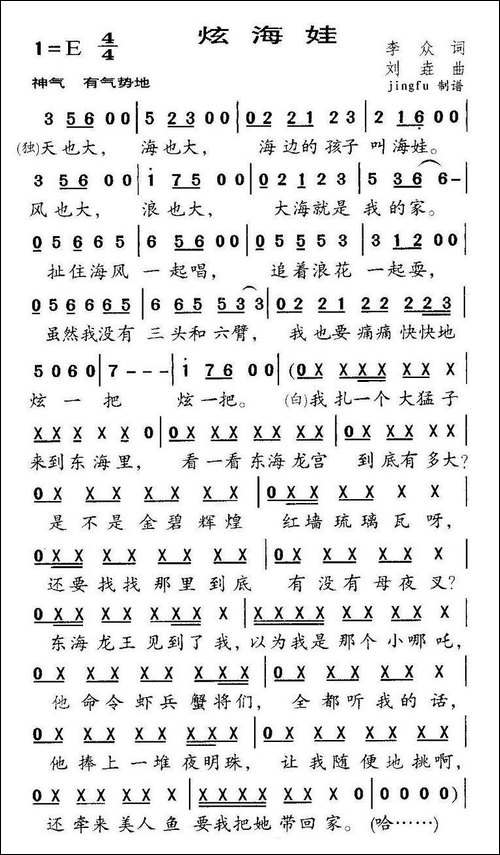 炫海娃
1=E 4/4
李众 词
刘垚 曲
神气 有气势地
jingfu 制谱
3 5 6 0 0 | 5 2 3 0 0 | 0 2 2 1 2 3 | 2 1 6 0 0
(独)天也大， 海也大， 海边的孩子 叫海娃。
3 5 6 0 0 | i 7 5 0 0 | 0 2 1 2 3 | 5 3 6 6 -
风也大， 浪也大， 大海就是 我的家。
0 5 6 6 5 | 6 5 6 0 0 | 0 5 5 5 3 | 3 1 2 0 0
扯住海风 一起唱， 追着浪花 一起耍，
0 5 6 6 6 5 | 6 6 5 5 3 3 | 0 2 2 1 | 2 2 2 2 3
虽然我没有 三头和六臂， 我也要痛痛快快地
5 0 6 0 | 7 - - - | i 7 6 0 0 | (0 X X X X X X X
炫一把 炫一把。 (白)我扎一个大猛子
X X X X X 0 | 0 X X X X X X | 0 X X X X X
来到东海里， 看一看东海龙宫 到底有多大？
0 X X X X X X X | 0 X X X X X X
是不是金碧辉煌 红墙琉璃瓦呀，
0 X X X X X X X | 0 X X X X X
还要找找那里到底 有没有母夜叉？
0 X X X X X X X X | X X X X X X X X X
东海龙王见到了我，以为我是那个小哪吒，
0 X X X X X X X | 0 X X X X X
他命令虾兵蟹将们， 全都听我的话，
0 X X X X X X X | X X X X X X X
他捧上一堆夜明珠， 让我随便地挑啊，
0 X X X X X | X X X X X X X 0 | 0 0 0 0)
还牵来美人鱼 要我把她带回家。(哈……)